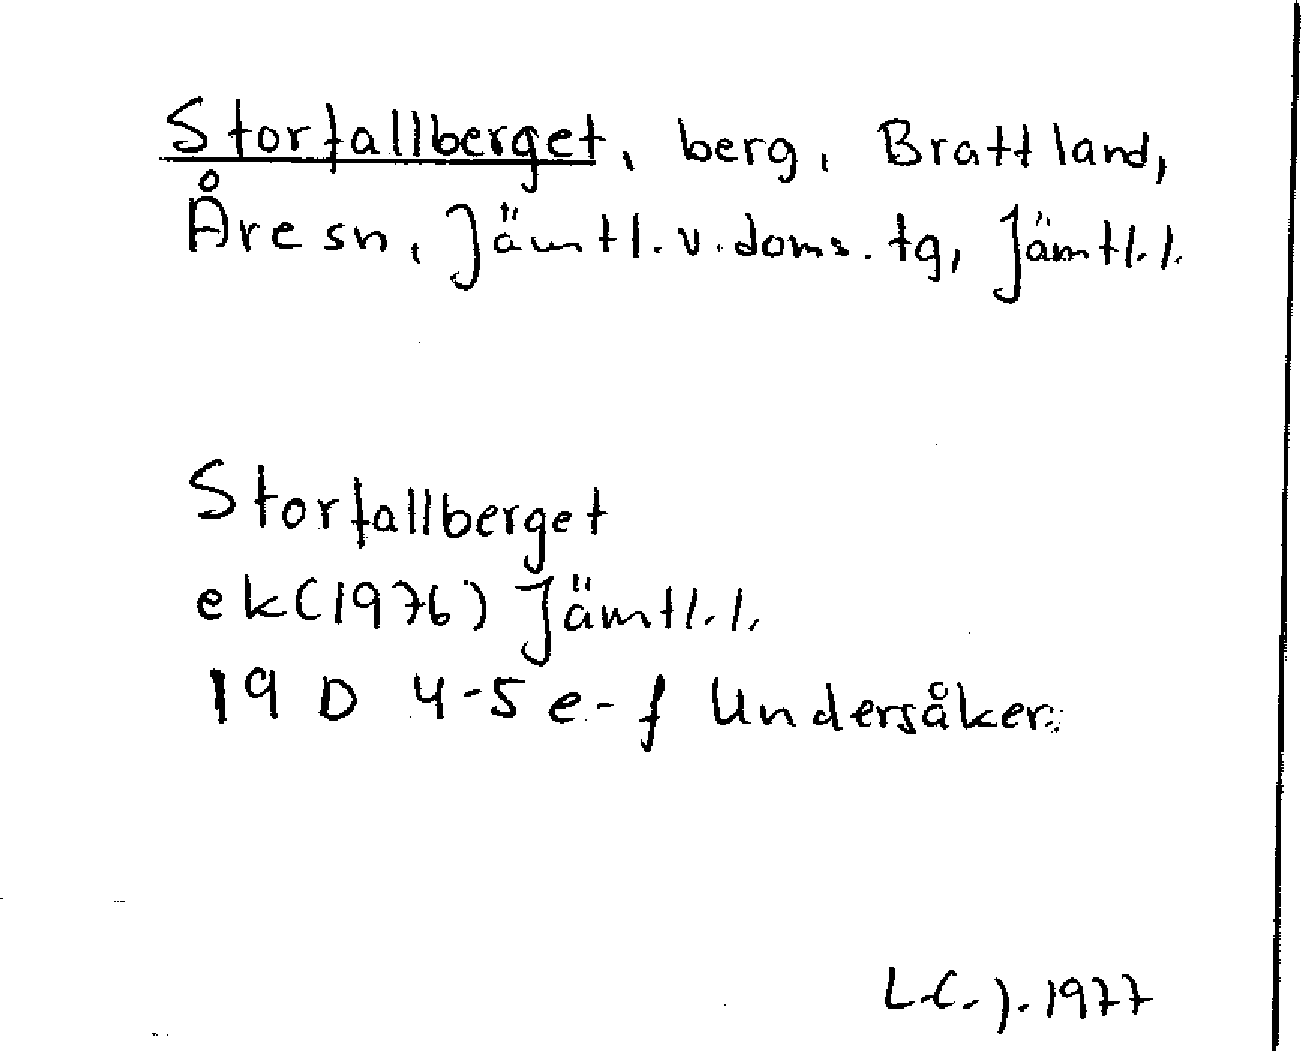 Storfallberget, berg, Brattland,
Åre sn, Jämtl. v. doms. tg, Jämtl. l.
Storfallberget
ek (1976) Jämtl. l.
19 D 4-5 e-f Undersåker
L.C.J. 1977